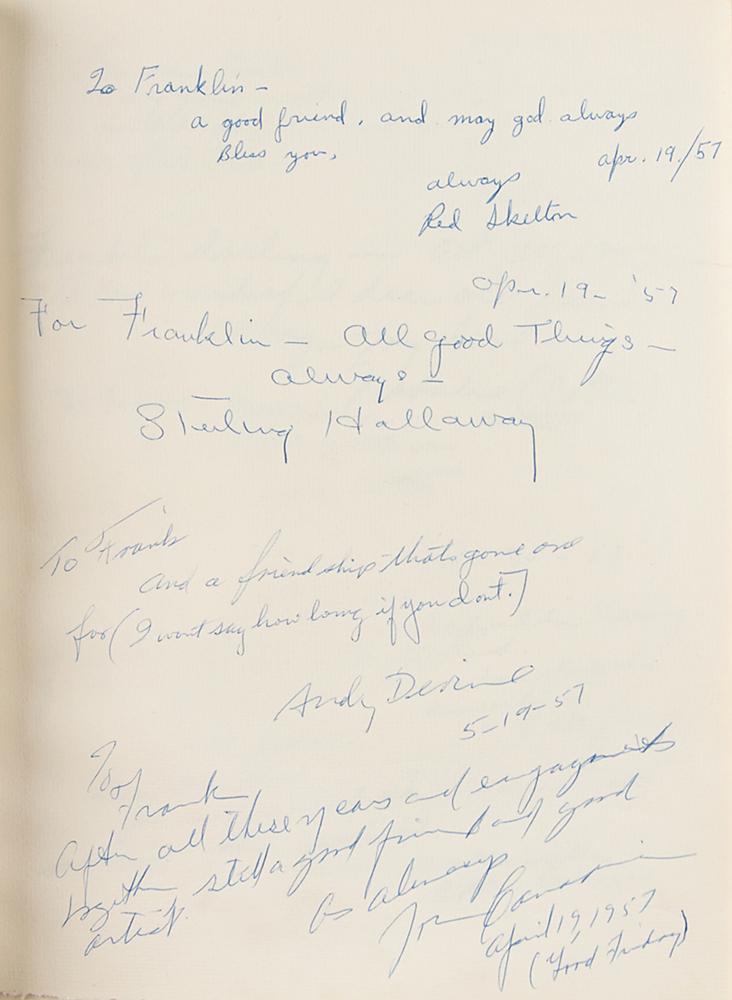 To Franklin –
a good friend, and may god always
Bless you,
apr. 19./57
always
Red Skelton
Apr. 19 – '57
For Franklin – All good Things –
always –
Sterling Hallaway
To Frank
and a friendship thats gone one
for (I wont say how long if you dont.)
Andy Devine
5-19-57
To Frank
After all these years and engagements
together still a good friend and good
artist.
As always
April 19, 1957
(Good Friday)